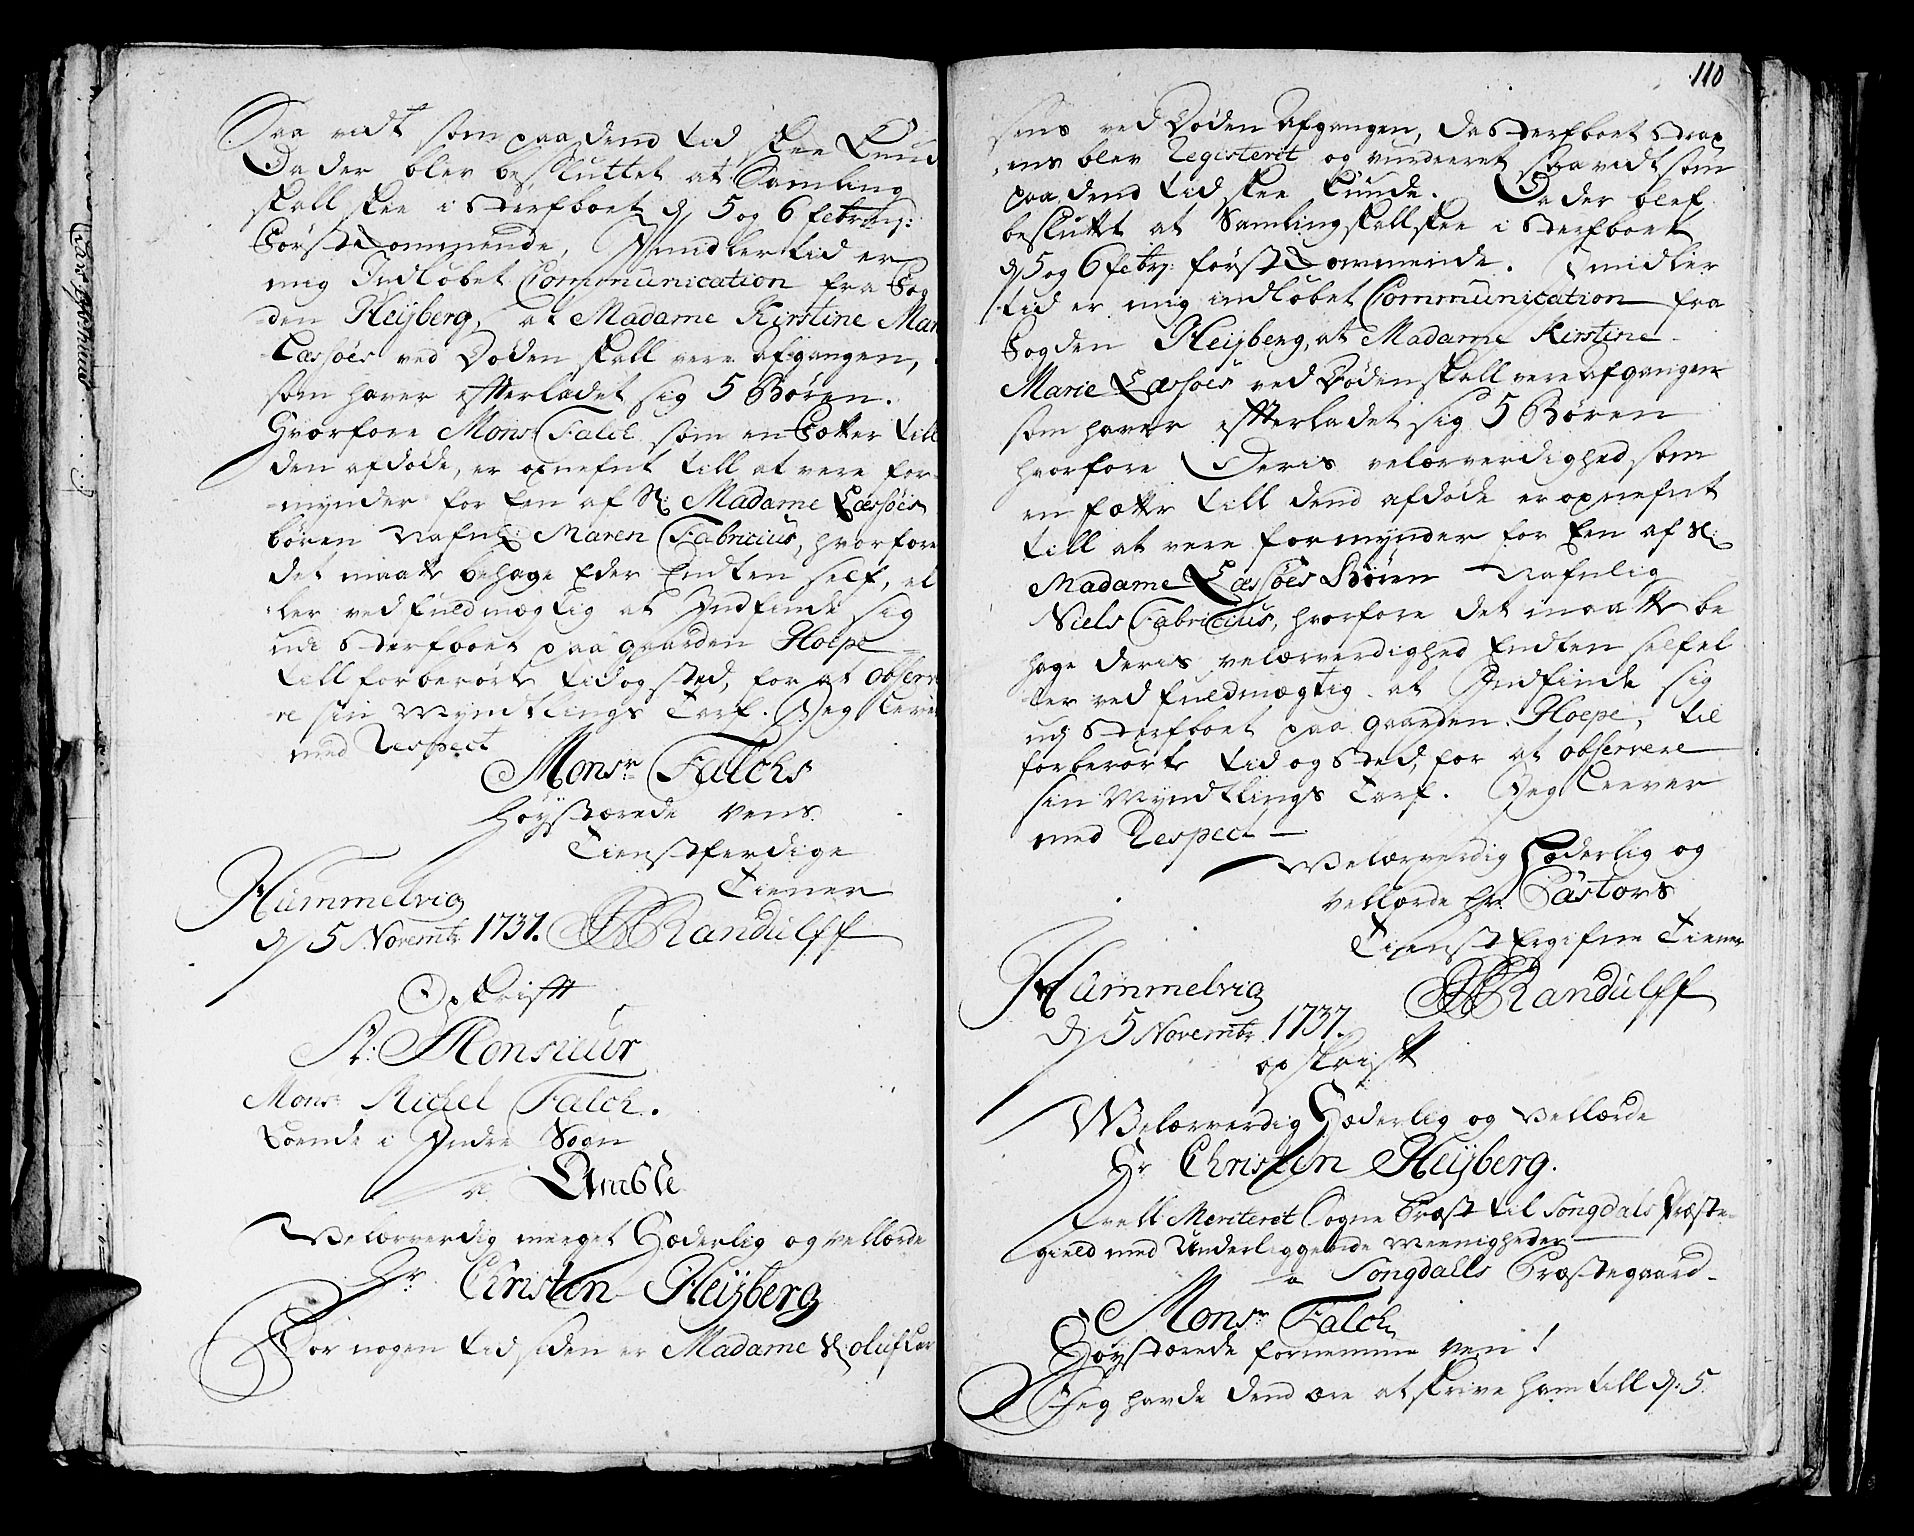 Saa vidt som paa dend tid skee Kund
Da der blev besluttet at Samling
skall skee i Sterfboet d. 5 og 6 febru:
først Kommende, Imidlertid er
mig Indløbet Communication fra Fog
den Heÿberg, at Madame Kirstine Mar
Læssøes ved Døden skall vere afgangen,
som haver efterladet sig 5 Børen.
Hvorfore Monsr Falch som en Fetter till
den afdøde, er opnefnt till at vere for-
mynder for Een af Sl: Madame Læssøes
børen Nafnl: Maren Fabricius, hvorfore
det maatte behage Eder Endten self, el
ler ved fuldmægtig at Indfinde sig
udi Sterfboet paa gaarden Hoepe
till forberørte tid og sted, for at observe
re sin Myndtlings Tarf. Jeg lever
med Respect
Monsr Falchs
Høystærede Vens
Tienstferdige
Tiener
Hummelvig
d. 5 Novembr 1737. Randulff
Opskrift
A: Monsieur
Monsr Michel Falch.
Boende i Indre Sogn
a Amble
Velærverdig meeget Hæderlig og vellærde
Hr. Christen Heÿberg
For nogen tid siden er Madame Sl: oluf Lar
110
sens ved Døden Afgangen, da Sterfboet strax
ens blev Registeret og vurderet saavidt som
paa dend tid skee Kunde. Da der blef
besluttet at Samling skall skee i Sterfboet
d. 5 og 6 febr: først Kommende. Imidler
tid er mig indløbet Communication fra
Fogden Heÿberg, at Madame Kirstine
Marie Læssøes ved Døden skall vere afgangen
som haver efterladet sig 5 Børen
hvorfore Deris velærverdighed som
en fætter till dend afdøde er opnefnt
till at vere formynder for Een af Sl:
Madame Læssøes Børen Nafnlig
Niels Fabricius, hvorfore det maatte be
hage deris velærverdighed Endten self el
ler ved fuldmægtig at Indfinde sig
udj Sterfboet paa gaarden Hoepe, til
forberørte tid og Sted, for at observere
sin Myndtlings Tarf. Jeg leever
med Respect
Velærverdig Hæderlig og
vellærde Hr. Pastors
Tienst Ergifne Tiener
Hummelvig Randulff
d. 5 Novembr. 1737.
opskrift
Velærverdig Hæderlig og Vellærde
Hr Christen Heÿberg.
Vell Meriteret Sogne Præst til Songdals Præste-
gield med Underliggende Meenigheder
a Songdalls Præstegaard
Monsr Falch
Høystærede fornemme Ven!
Jeg havde dend ære at skrive ham till d: 5